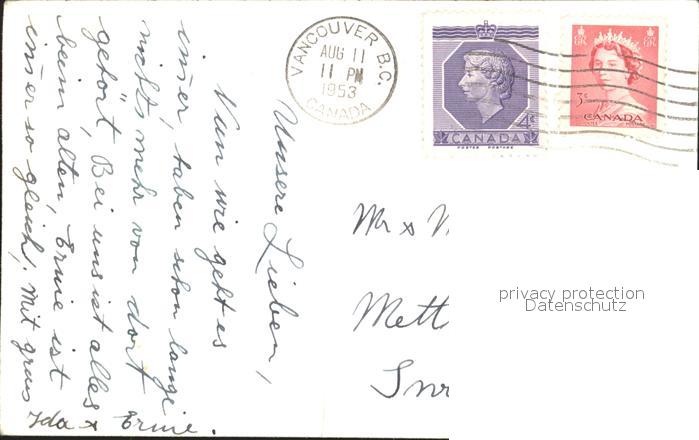 VANCOUVER B.C.
AUG 11
11 PM
1953
CANADA
4¢
CANADA
POSTES POSTAGE
EIIR EIIR
3¢
CANADA
Unsere Lieben,
Nun wie geht es
immer, haben schon lange
nichts mehr von dort
gehört, Bei uns ist alles
beim alten, Ernie ist
immer so gleich, Mit gruss
Ida & Ernie.
Mr &
Mett
Inn
privacy protection
Datenschutz